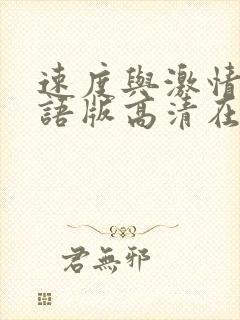 速度與激情
語版高清在
君無邪